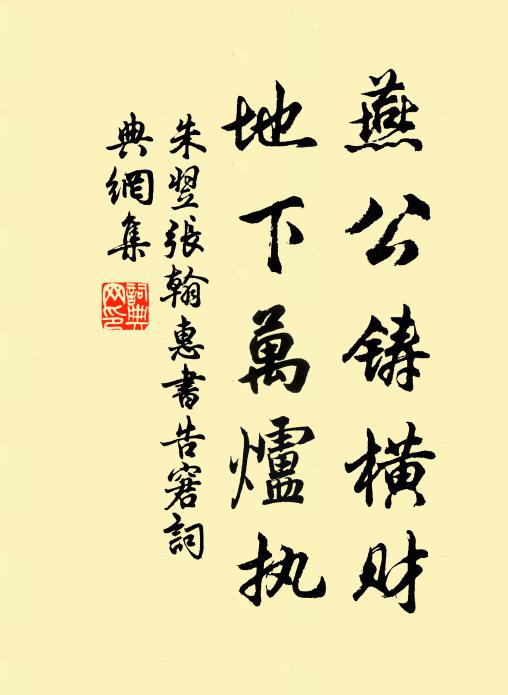 燕公铸橫财
地下萬爐执
朱翌張翰惠書告窘詞
典網集
詞典网印